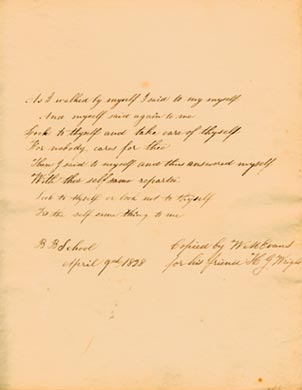 As I walked by myself I said to my myself
And myself said again to me
Look to thyself and take care of thyself
For nobody cares for thee
Then I said to myself and thus answered myself
With the self same repartee
Look to thyself or look not to thyself
Tis the self same thing to me
B B School
April 9th 1828
Copied by W M Evans
for his friend H G Wright